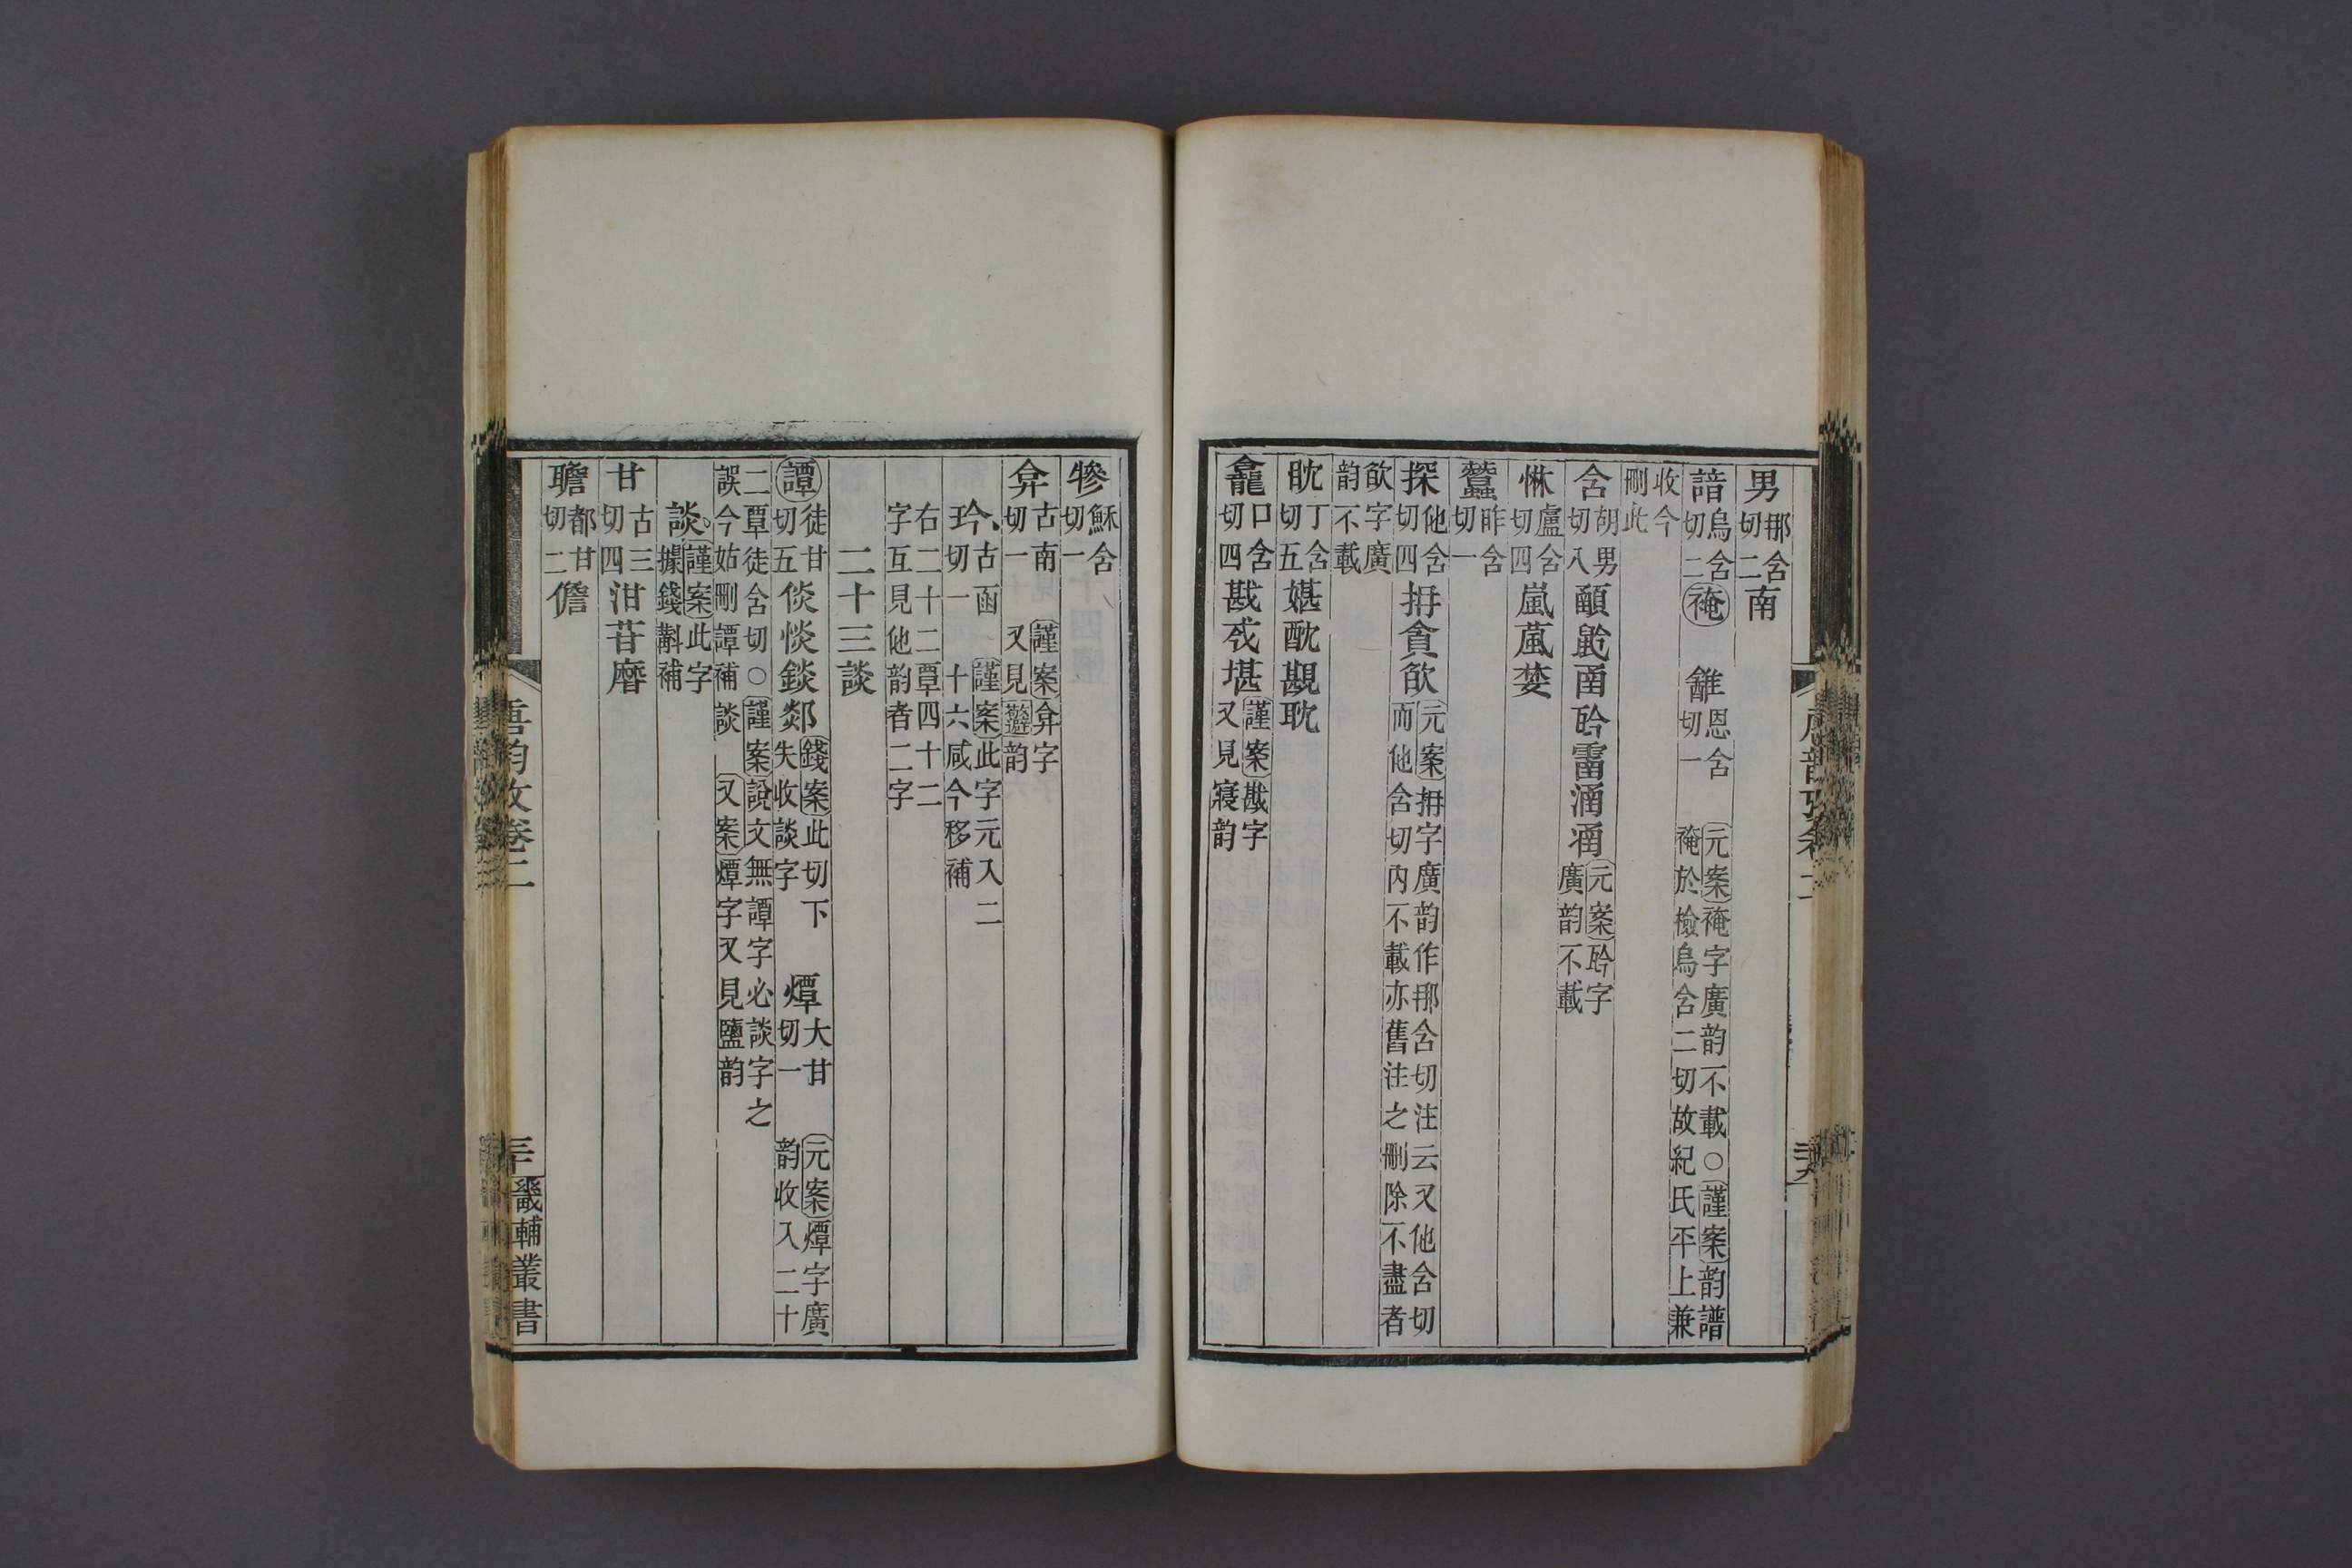 男那含切二南
諳烏含切二䅖 䨄恩含切一 元案䅖字廣韵不載○謹案韵譜䅖於檢烏含二切故紀氏平上兼
收今刪此
含胡男切八顄䶃圅䏩霤涵㴠元案䏩字廣韵不載
惏盧含切四嵐葻婪
蠶昨含切一
探他含切四抩貪㱃元案抩字廣韵作那含切注云又他含切而他含切內不載亦舊注之刪除不盡者
㱃字廣韵不載
眈丁含切五媅酖覴耽
龕口含切四戡㦰堪謹案戡字又見寑韵
犙穌含切一
弇古南切一 謹案弇字又見韵
玪古函切一 謹案此字元入二十六咸今移補
右二十二覃四十二字互見他韵者二字
二十三談
譚徒甘切五倓惔錟郯錢案此切下失收談字 燂大甘切一 元案燂字廣韵收入二十
二覃徒含切○謹案說文無譚字必談字之誤今姑刪譚補談 又案燂字又見鹽韵
談謹案此字據錢斠補
甘古三切四泔苷磿
聸都甘切二儋
唐韵攷卷二
三十
畿輔叢書